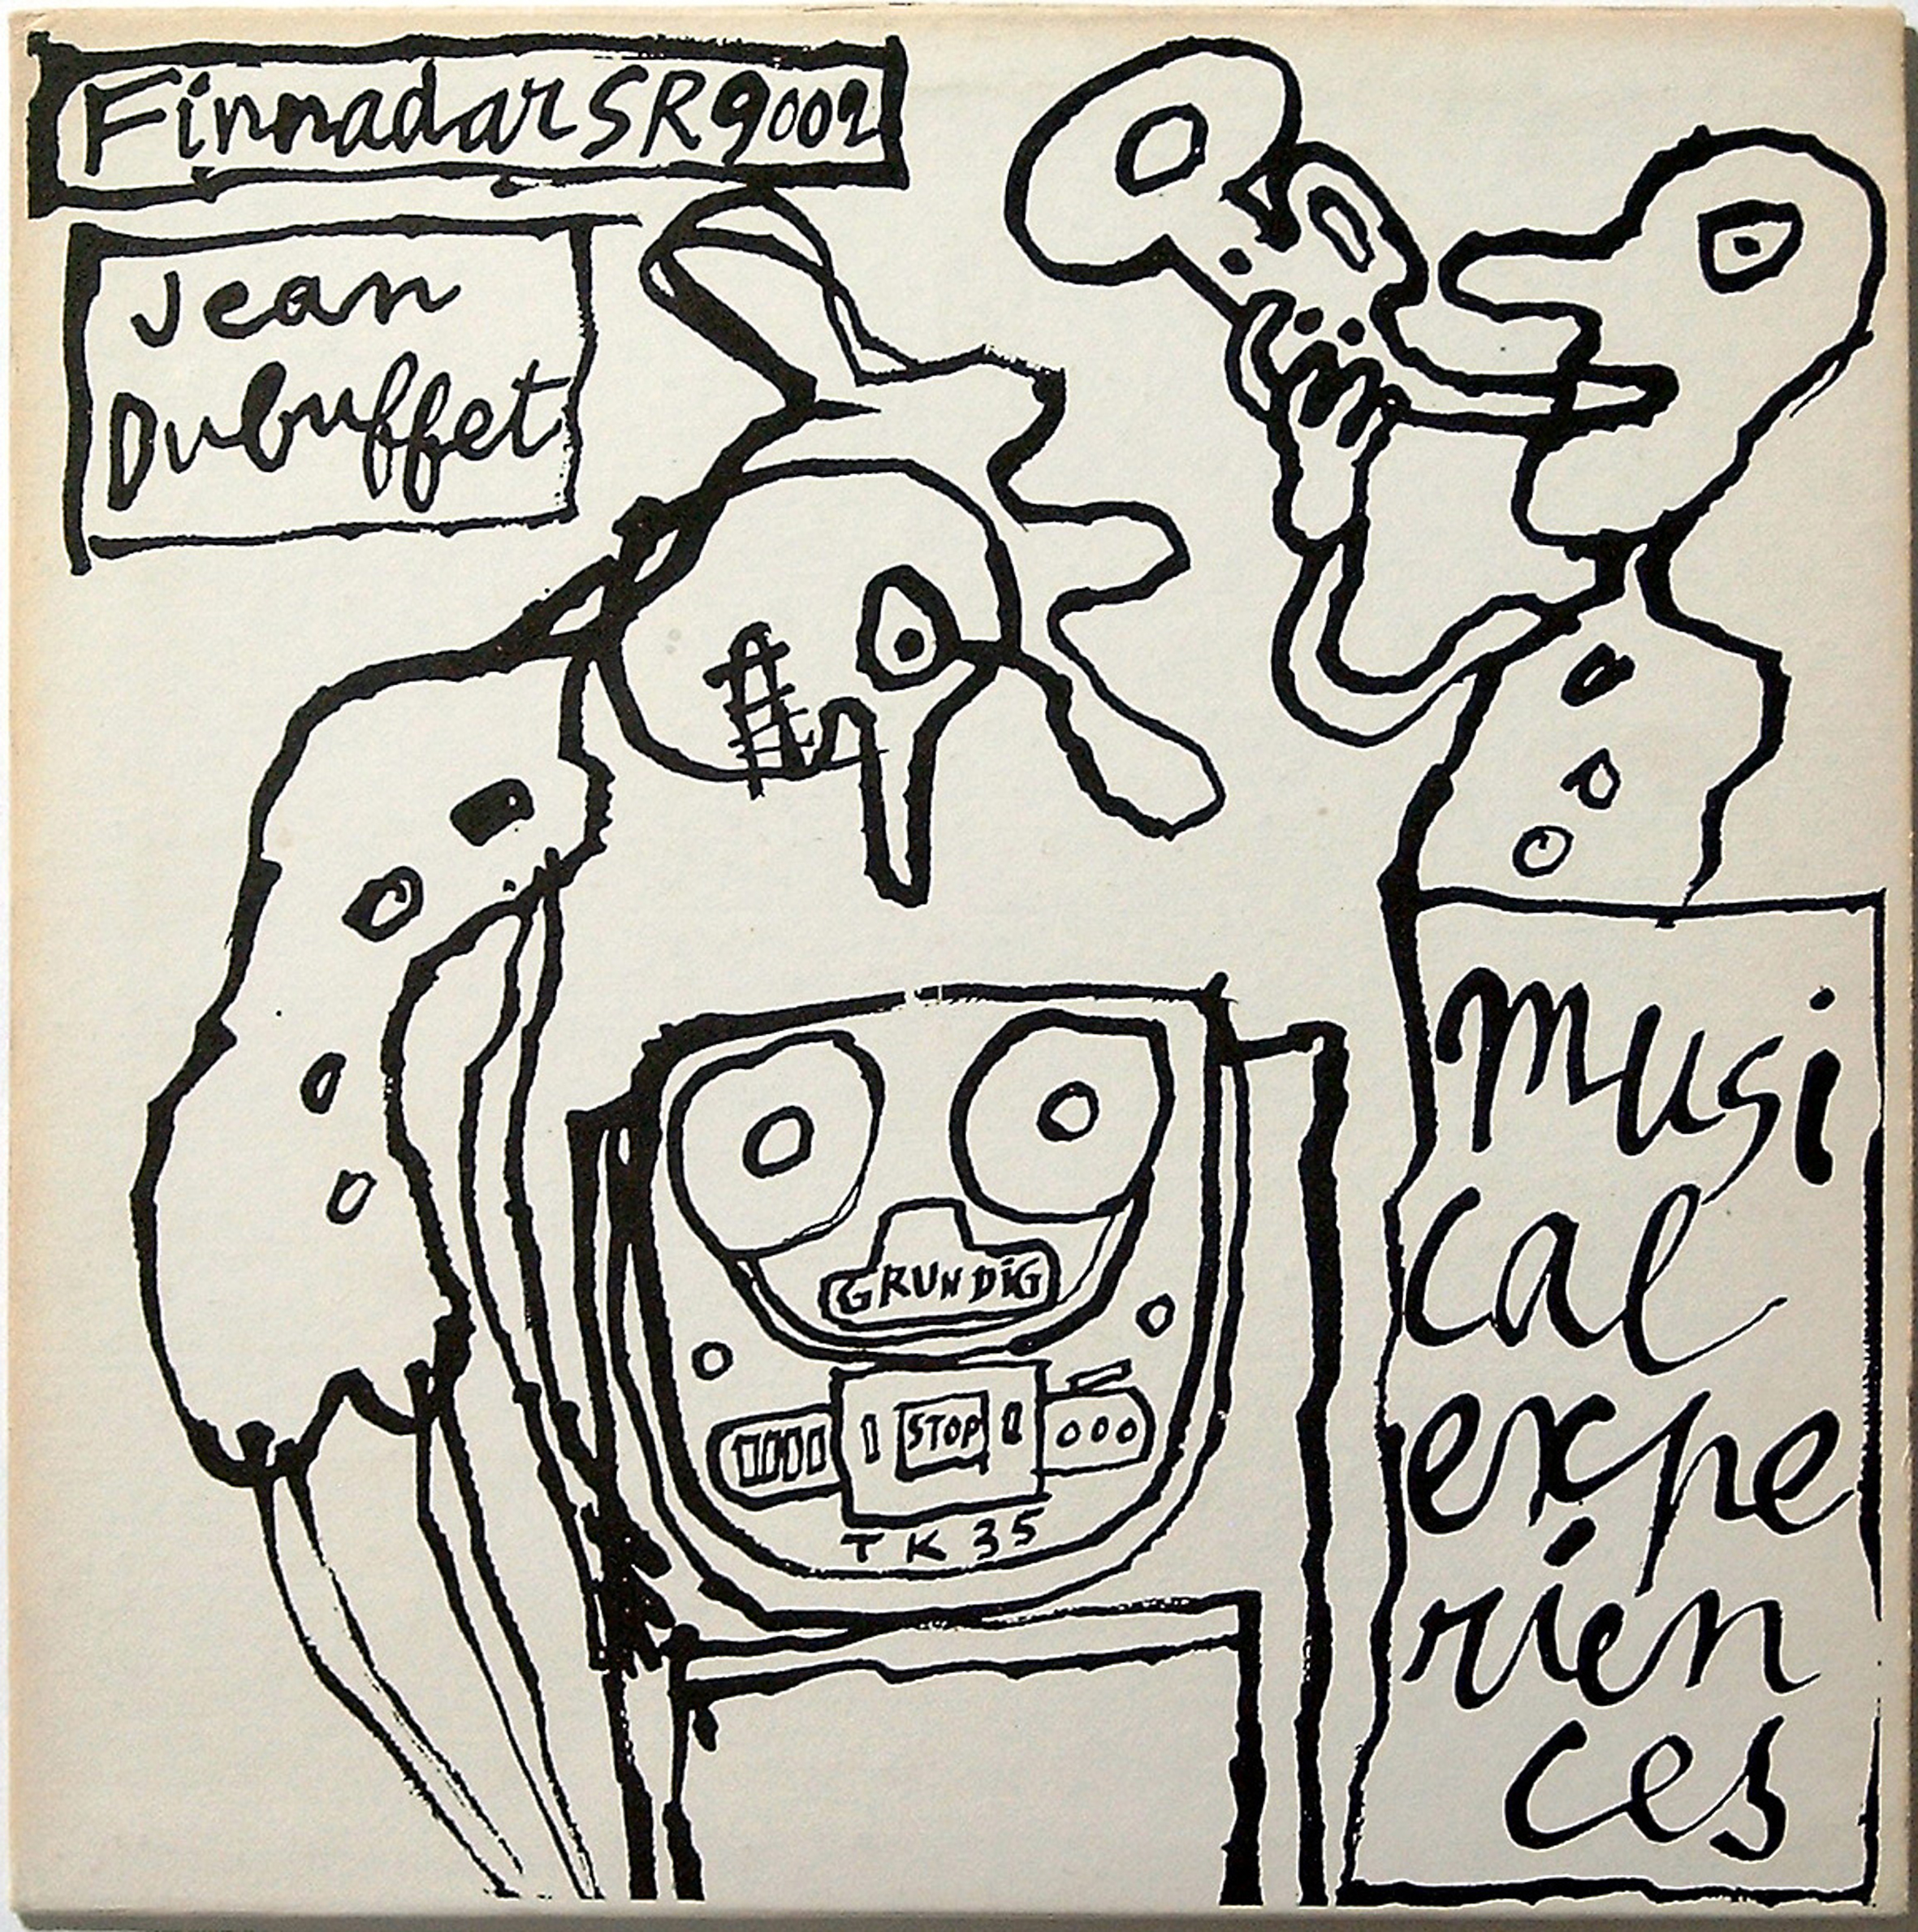 Finnadar SR 9002
Jean
Dubuffet
musi
cal
expe
rien
ces
GRUNDIG
STOP
TK 35